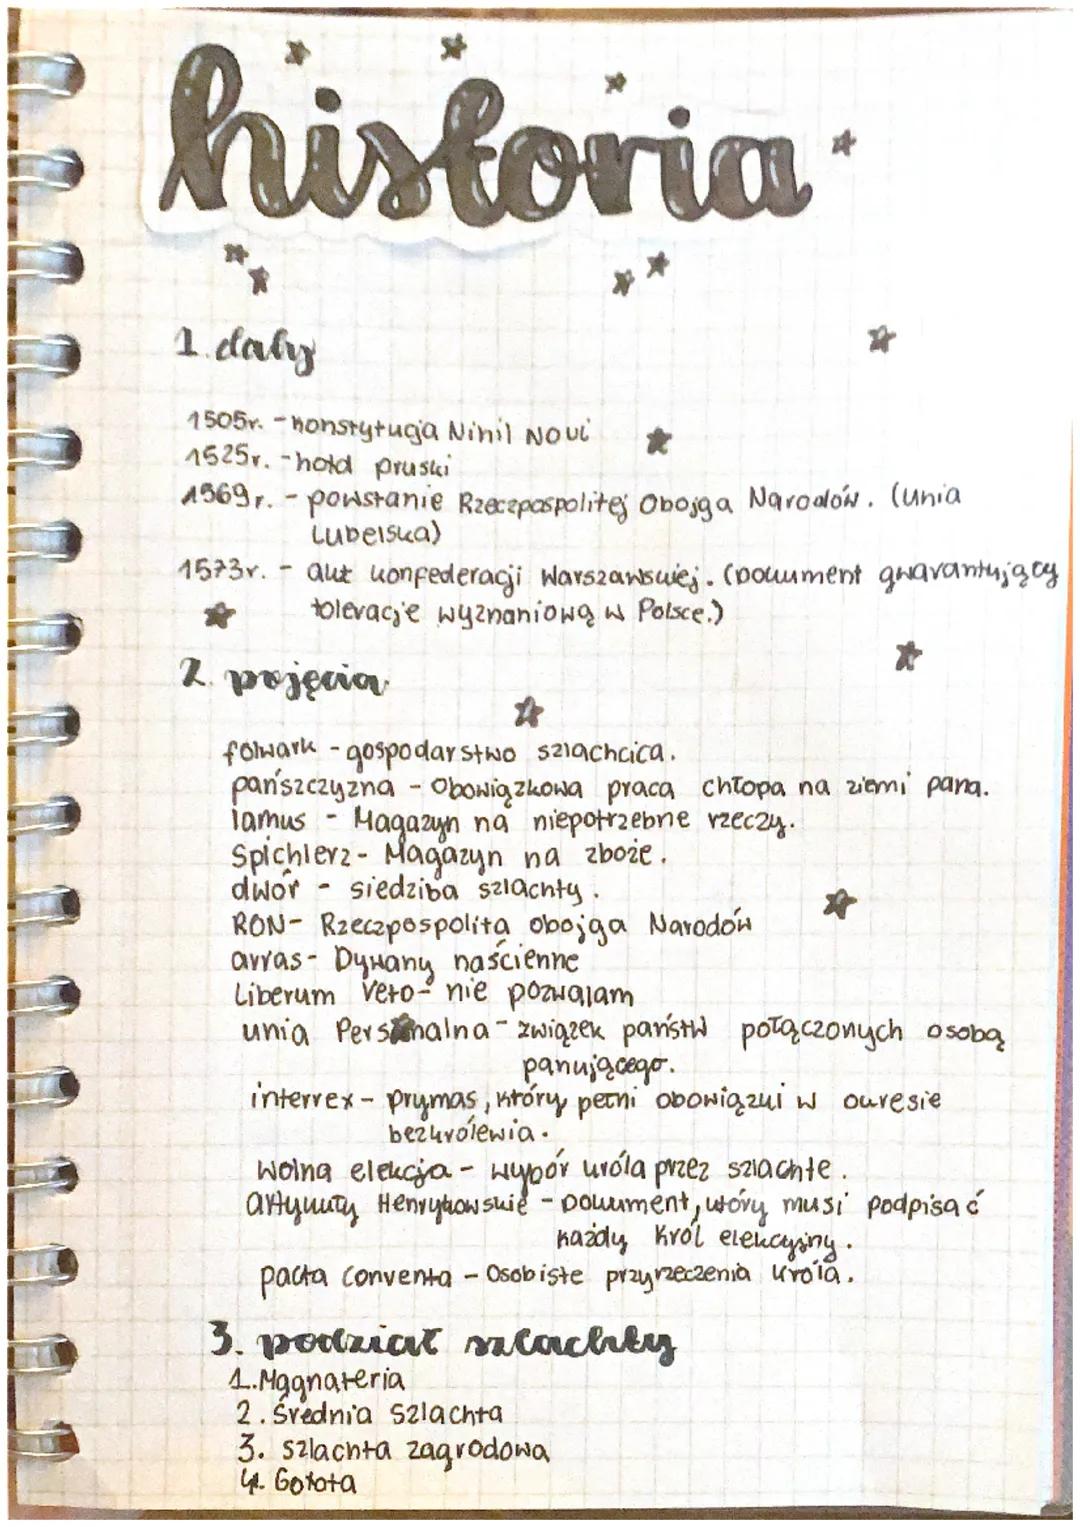 historia
1. daty
1505r. - konstytucja Nihil Novi
1525r. - hołd pruski
1569r. - powstanie Rzeczpospolitej Obojga Narodów. (Unia
Lubelska)
1573r. - akt konfederacji Warszawskiej. (Dokument gwarantujący
tolerację wyznaniową w Polsce.)
2. pojęcia
folwark - gospodarstwo szlachcica.
pańszczyzna - Obowiązkowa praca chłopa na ziemi pana.
lamus - Magazyn na niepotrzebne rzeczy.
Spichlerz - Magazyn na zboże.
dwór - siedziba szlachty.
RON - Rzeczpospolita obojga Narodów
arras - Dywany naścienne
Liberum Veto - nie pozwalam
unia Personalna - związek państw połączonych osobą
panującego.
interrex - prymas, który pełni obowiązki w okresie
bezkrólewia.
wolna elekcja - wybór króla przez szlachte.
artykuły Henrykowskie - Dokument, który musi podpisać
każdy król elekcyjny.
pacta conventa - Osobiste przyrzeczenia króla.
3. podział szlachty
1. Magnateria
2. Średnia szlachta
3. szlachta zagrodowa
4. Gołota